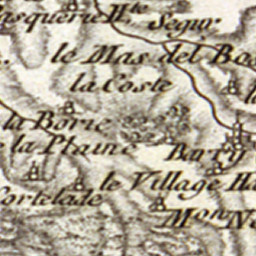 asquerie H.te
Segur
le Mas del Bos
la Coste
la Borie
la Plaine Barry
le Village Ha
Cortelade
Mon No